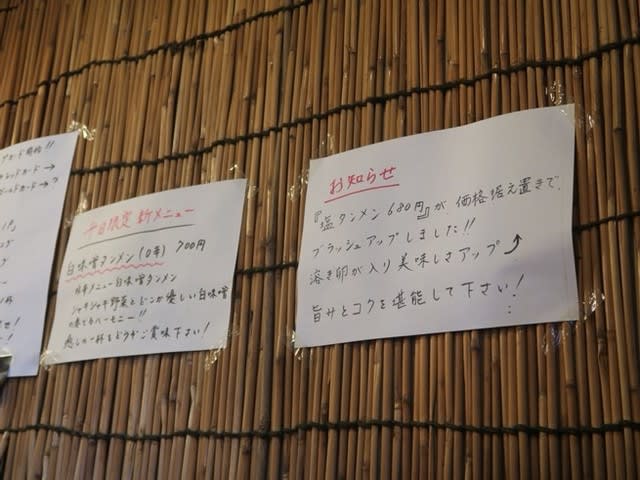 ドカード→
ールドカード→
平日限定 新メニュー
白味噌タンメン(0辛) 700円
メニュー白味噌タンメン
シャキシャキ野菜とどこか優しい白味噌
の奏でるハーモニー!!
癒しの一杯をどうかご賞味下さい!
お知らせ
『塩タンメン680円』が、価格据え置きで、
ブラッシュアップしました!!
溶き卵が入り美味しさアップ↑
旨サとコクを堪能して下さい!